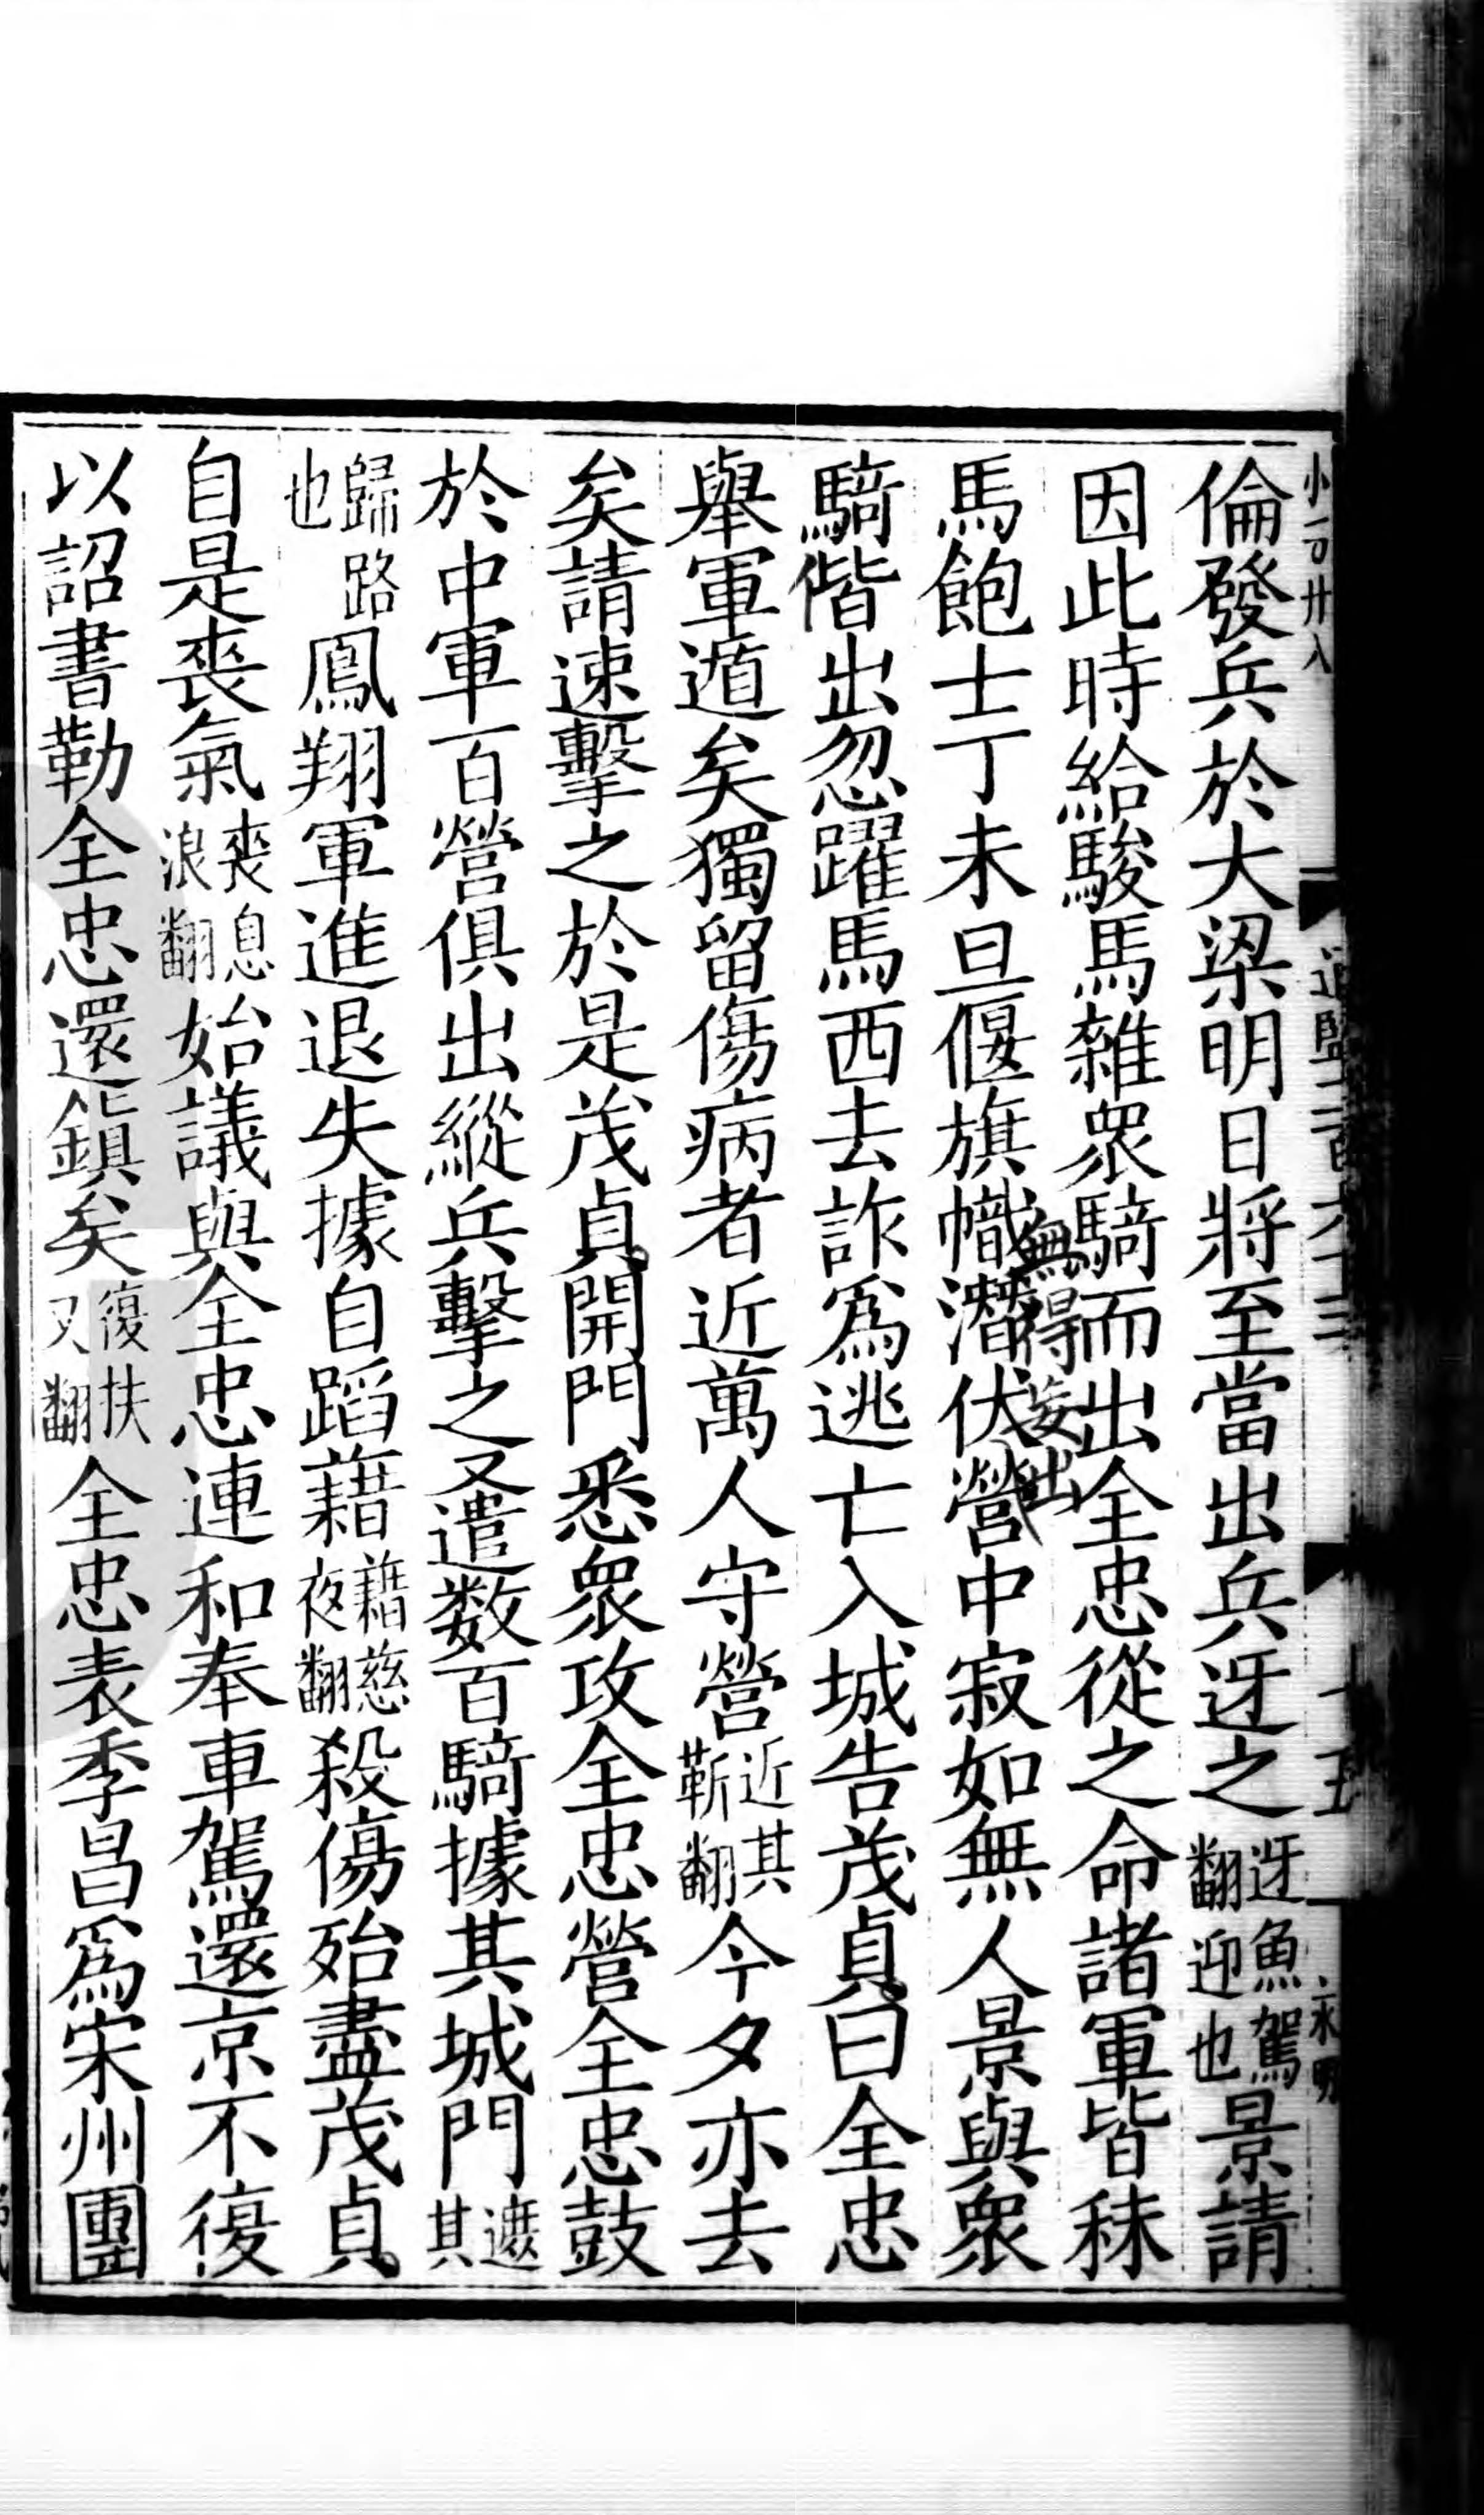 倫發兵於大梁明日將至當出兵迓之迓魚駕翻迎也景請
因此時給駿馬雜衆騎而出全忠從之命諸軍皆秣
馬飽士丁未旦偃旗幟潛伏營中寂如無人景與衆
無得妄出
騎偕出忽躍馬西去詐爲逃亡入城告茂貞曰全忠
舉軍遁矣獨留傷病者近萬人守營近其靳翻今夕亦去
矣請速擊之於是茂貞開門悉衆攻全忠營全忠鼓
於中軍百營俱出縱兵擊之又遣数百騎據其城門遮其
歸路也鳳翔軍進退失據自蹈藉藉慈夜翻殺傷殆盡茂貞
自是喪氣喪息浪翻始議與全忠連和奉車駕還京不復
以詔書勒全忠還鎭矣復扶又翻全忠表季昌爲宋州團